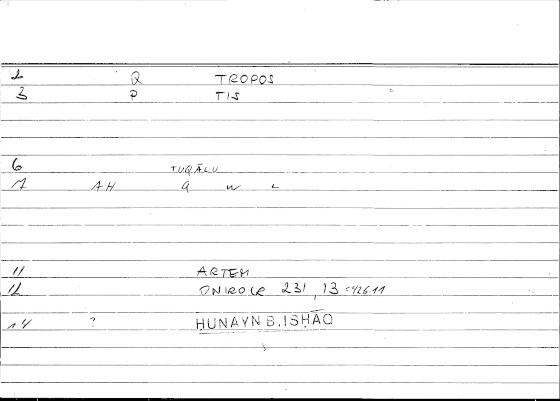 2 Q TROPOS
3 P TIS
6 TUQĀLU
7 AH Q W L
11 ARTEM
12 ONIROCR 231, 13 = 426 11
14 ? ḤUNAYN B. ISḤĀQ